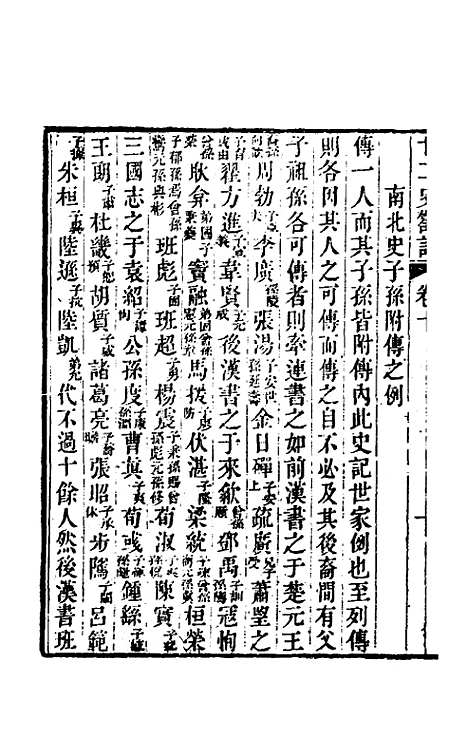 廿二史劄記 卷十
南北史子孫附傳之例
傳一人而其子孫皆附傳內此史記世家例也至列傳
則各因其人之可傳而傳之自不必及其後裔間有父
子祖孫各可傳者則牽連書之如前漢書之于楚元王
周勃子亞夫李廣孫陵張湯子安世孫延壽金日磾子安上疏廣蕭望之
子育咸由翟方進子宣義韋賢子元成後漢書之于來歙鄧禹寇恂
耿弇弟國竇融馬援伏湛子隆梁統桓榮
班彪子固班超子勇楊震荀淑陳寔子紀
三國志之于袁紹子譚尚公孫度曹真子爽荀彧鍾繇
王朗子肅杜畿子恕預胡質子威諸葛亮子瞻張昭子承休步隲子闡呂範
子據朱桓子異陸遜子抗陸凱弟允代不過十餘人然後漢書班